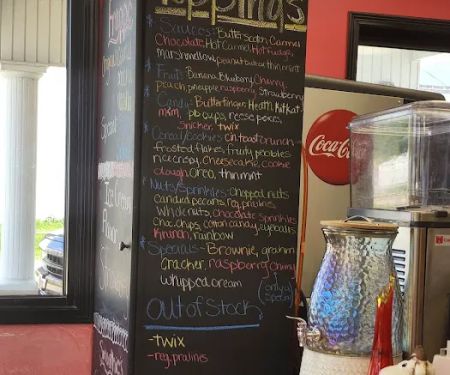 Toppings
* Sauces: Butterscotch, Carmel
Chocolate, Hot Carmel, Hot Fudge,
Marshmellow, peanut butter, thin mint
* Fruit: Banana, Blueberry, Cherry
peach, pineapple, raspberry, Strawberry
* Candy: Butterfinger, Heath, Kit Kat
m&m, pb cups, reese pieces,
Snicker, twix
* Cereal/Cookies: cin toast crunch
frosted flakes, fruity pebbles
rice crispy, cheesecake, cookie
dough, Oreo, thin mint
* Nuts/Sprinkles: chopped nuts
candied pecans, reg. pralines
Whole nuts, chocolate sprinkles
Choc. Chips, cotton candy, eyeballs
Krunch, rainbow
* Specials: Brownie, graham
cracker, raspberry, cherry
whipped cream
Out of Stock
-twix
-reg. pralines
Coca-Cola
Ice Cream
Flavor